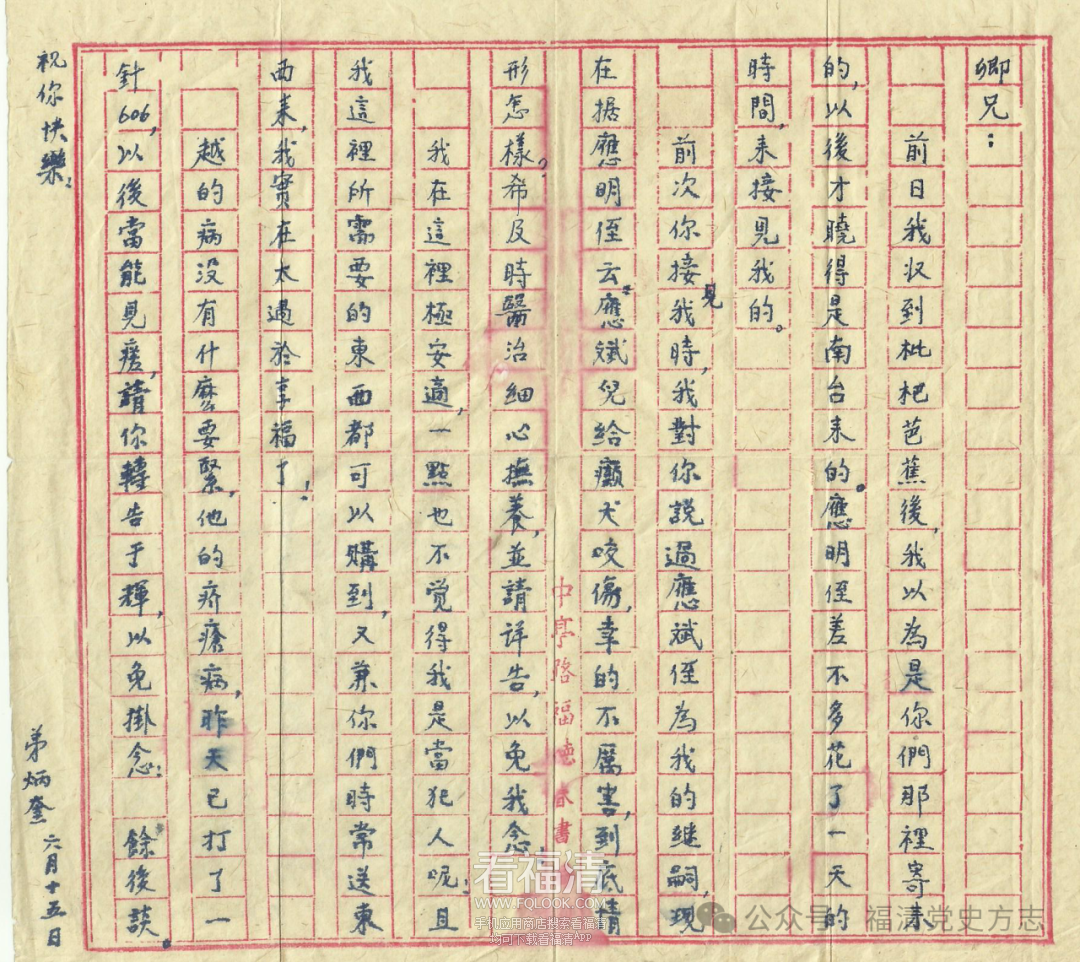 卿兄：
前日我収到枇杷芭蕉後，我以為是你們那裡寄来
的，以後才曉得是南台来的。應明侄差不多花了一天的
時間，来接見我的。
前次你接見我時，我對你説過應斌侄為我的继嗣，現
在据應明侄云應斌兒給癲犬咬傷，幸的不厲害，到底情
形怎樣。希及時醫治細心撫养，並請详告，以免我念，
我在這裡極安適，一點也不覚得我是當犯人呢！且
我這裡所需要的東西都可以購到，又兼你們時常送東
西来，我實在太過於享福了！
越的病没有什麽要緊，他的疥瘡病，昨天已打了一
針606，以後當能見痊，請你轉告于輝，以免掛念！ 餘後談。
祝你快樂！
弟炳奎 六月十五日
中亭路福德春書
看福清
WWW.FQLOOK.COM
手机应用商店搜索看福清
均可下载看福清APP
公众号 福清党史方志